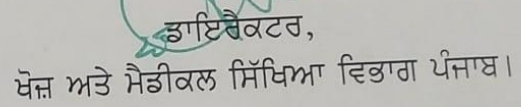 ਡਾਇਰੈਕਟਰ,
ਖੋਜ ਅਤੇ ਮੈਡੀਕਲ ਸਿੱਖਿਆ ਵਿਭਾਗ ਪੰਜਾਬ।